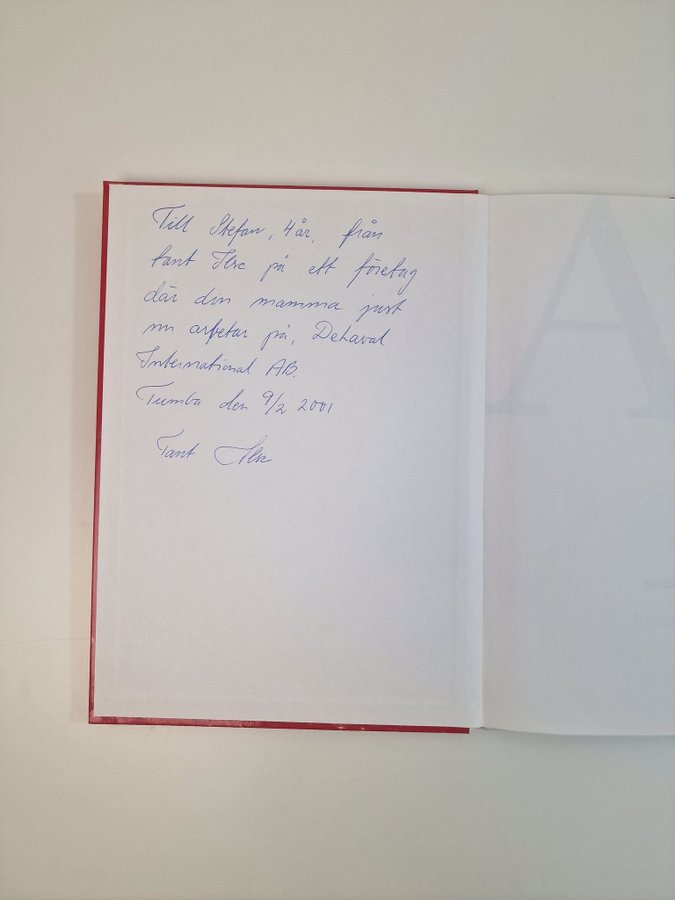 Till Stefan, 4 år, från
tant Ilse på ett företag
där din mamma just
nu arbetar på, DeLaval
International AB.
Tumba den 9/2 2001
Tant Ilse
A